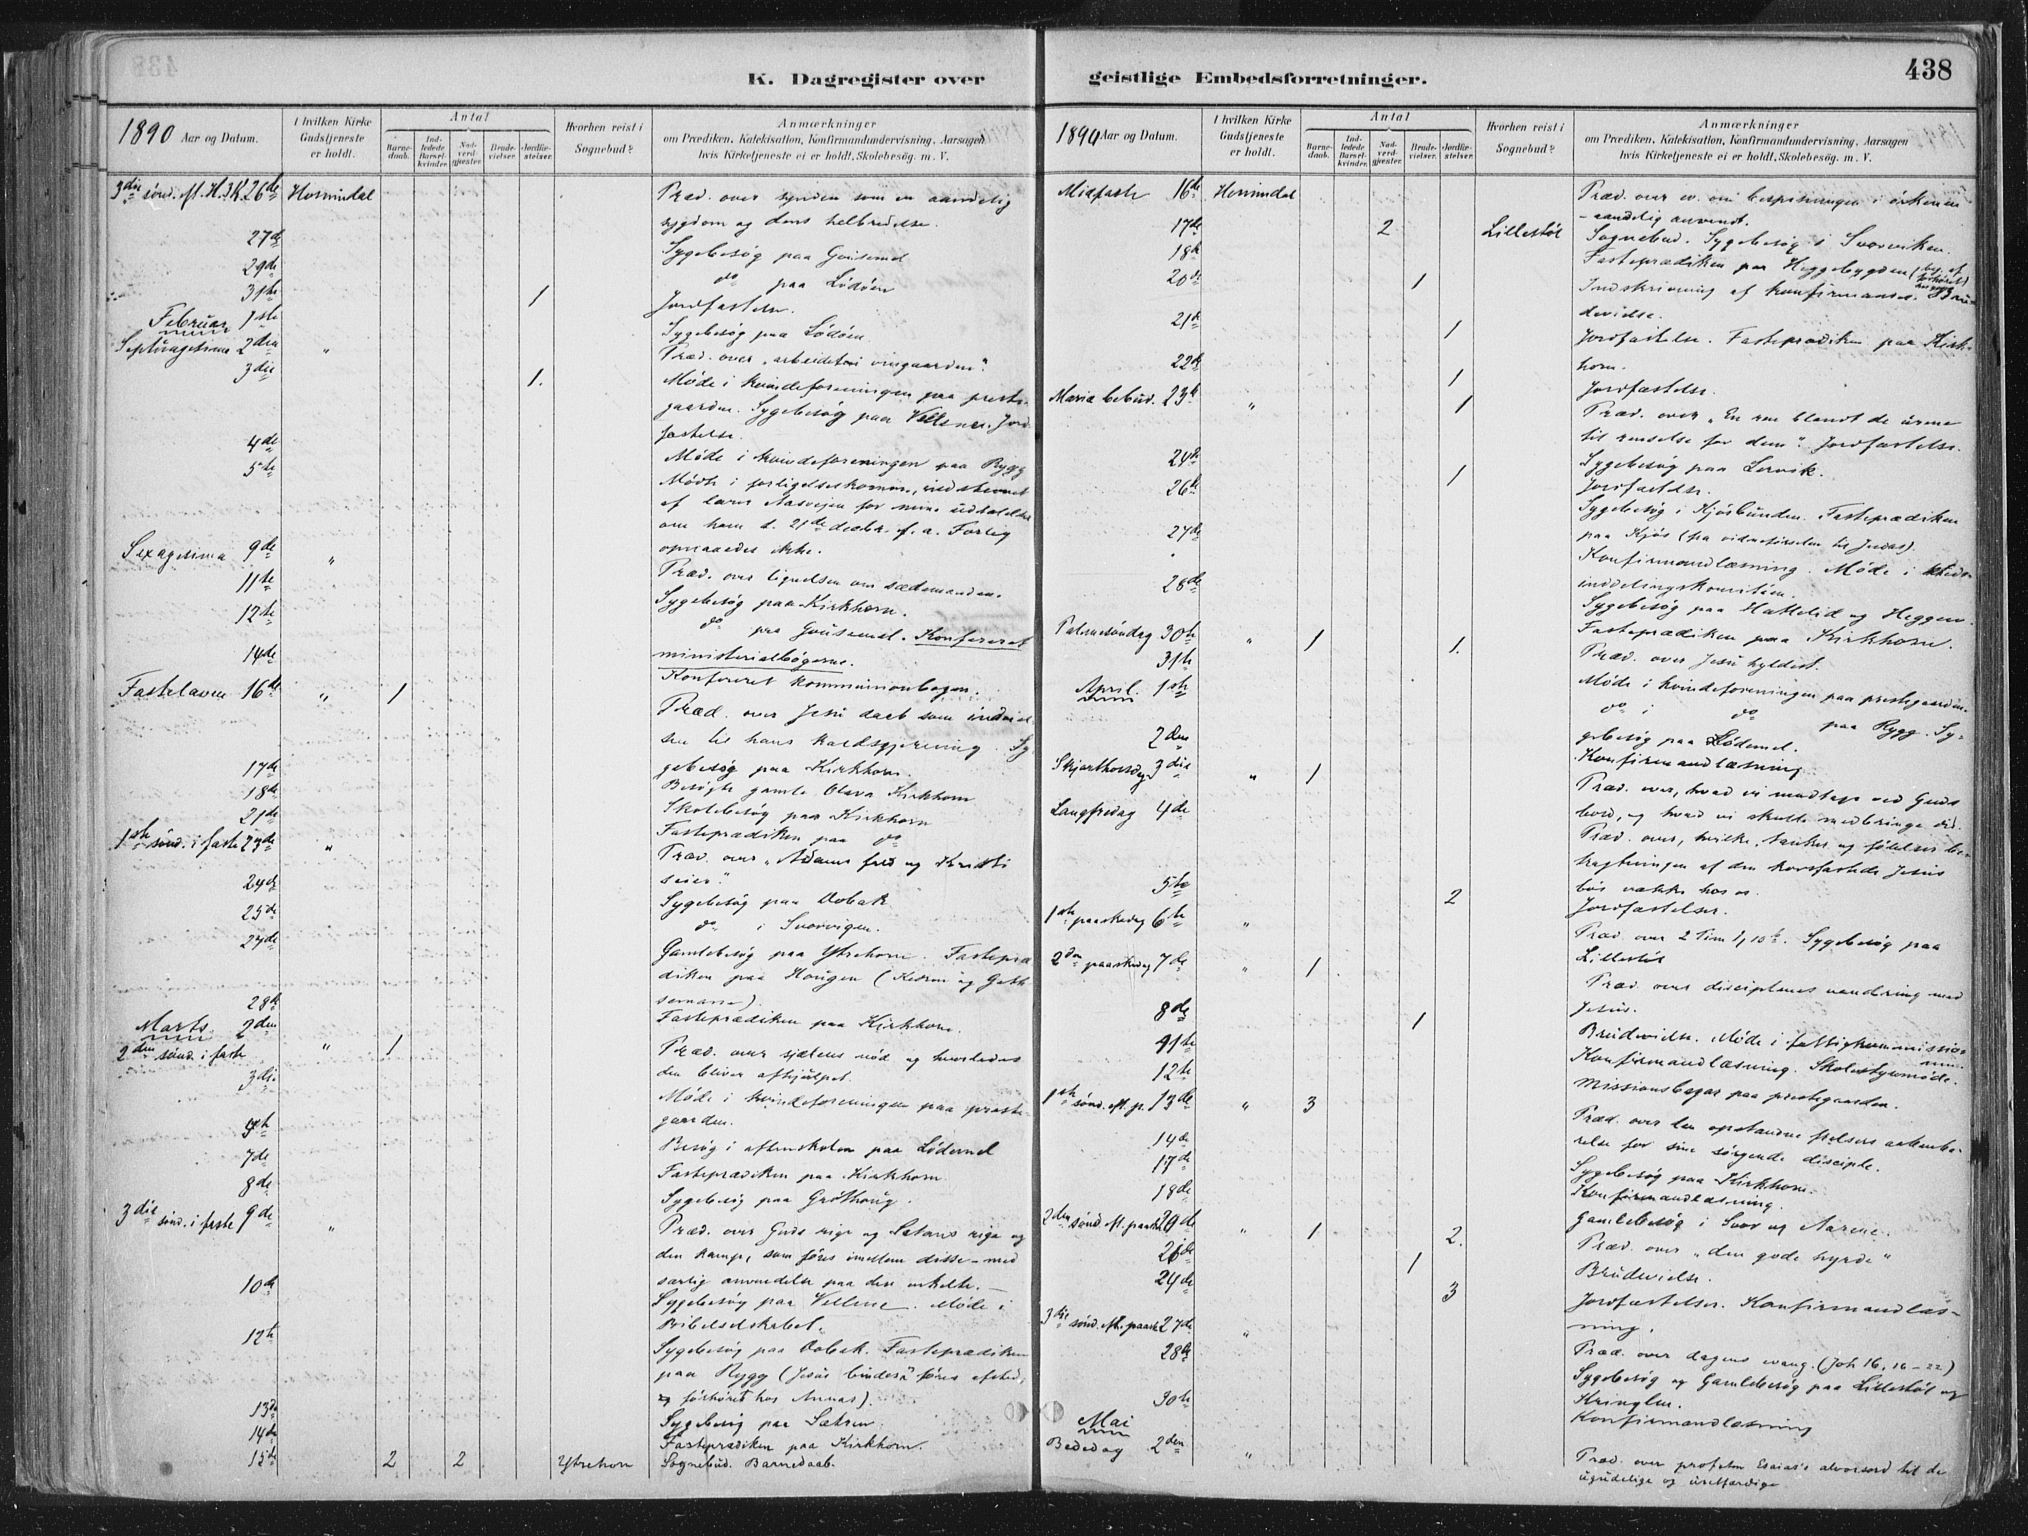 438
K. Dagregister over
1890 Aar og Datum.
I hvilken Kirke Gudstjeneste er holdt.
Antal
Barnedaab.
Indledede Barselkvinder.
Nadverdgjester.
Brudevielser.
Jordfæstelser.
Hvorhen reist i Sognebud?
Anmærkninger
om Prædiken, Katekisation, Konfirmandundervisning, Aarsagen
hvis Kirketjeneste ei er holdt, Skolebesøg. m. V.
3die sønd. eft. H.3K. 26de Hornindal
Præd. over synden som en aandelig
sygdom og dens helbredelse.
27de
Sygebesøg paa Gousemel
29de
do paa Lødøen
31te 1
Jordfæstelse.
Februar 1ste
Sygebesøg paa Lødøen
Septuagesima 2den "
Præd. over "arbeidet i vingaarden".
3die 1.
Møde i kvindeforeningen paa preste-
gaarden. Sygebesøg paa Vellene. Jord
fæstelse.
4de
Møde i kvindeforeningen paa Rygg
5te
Møde i forligelseskomm., indstevnet
af Lars Aasvejen for mine udtalelser
om ham d. 21de decbr. f. a. Forlig
opnaaedes ikke.
Sexagesima 9de "
Præd. over lignelsen om sædemanden.
11te
Sygebesøg paa Kirkhorn.
12te
do paa Gousemel. Konfereret
ministerialbøgerne.
14de
Konfereret kommunionbogen.
Fastelaven 16de " 1
Præd. over Jesu daab som indviel-
sen til hans kaldsgjerning. Sy-
gebesøg paa Kirkhorn.
17de
Besøgte gamle Olava Kirkhorn
18de
Skolebesøg paa Kirkhorn
21de
Fasteprædiken paa do
1ste sønd. i faste 23de "
Præd. over "Adams fald og Kristi
seier."
24de
Sygebesøg paa Oobak
25de
do i Svorvigen.
27de
Gamlebesøg paa Ytrehorn. Fastepræ
diken paa Hougen (Kedron og Geth
semane)
28de
Fasteprædiken paa Kirkhorn.
Marts 2den
2den sønd. i faste " 1
Præd. over sjælens nød og hvorledes
den bliver afhjulpet.
3die
Møde i kvindeforeningen paa preste-
gaarden.
Besøg i aftenskolen paa Lødemel
7de
Fasteprædiken paa Kirkhorn
8de
Sygebesøg paa Grothoug.
3die sønd. i faste 9de "
Præd. over Guds rige og Satans rige og
den kamp, som føres imellem disse – med
særlig anvendelse paa den enkelte. –
10de
Sygebesøg paa Vellene. Møde i
Bibelselskabet.
12te
Sygebesøg paa Oobak. Fasteprædiken
paa Rygg (Jesus bindes & føres afsted,
forhøret hos Annas).
13de
Sygebesøg paa Sætren
14de
Fasteprædiken paa Kirkhorn.
15de 2 2 Ytrehorn
Sognebud. Barnedaab.
geistlige Embedsforretninger.
1890 Aar og Datum.
I hvilken Kirke Gudstjeneste er holdt.
Antal
Barnedaab.
Indledede Barselkvinder.
Nadverdgjester.
Brudevielser.
Jordfæstelser.
Hvorhen reist i Sognebud?
Anmærkninger
om Prædiken, Katekisation, Konfirmandundervisning, Aarsagen
hvis Kirketjeneste ei er holdt, Skolebesøg. m. V.
Midfaste 16de Hornindal
Præd. over ev. om bespisningen i ørkenen
– aandelig anvendt.
17de 2 Lillestøl
Sognebud. Sygebesøg i Svorviken.
18de
Fasteprædiken paa Heggebygden
20de 1
Indskrivning af konfirmander. Bru-
devielse.
21de 1
Jordfæstelse. Fasteprædiken paa Kirk-
horn.
22de 1
Jordfæstelse.
Mariæ bebud. 23de " 1
Præd. over "En ren blandt de urene
til renselse for dem". Jordfæstelse.
24de
Sygebesøg paa Lervik.
26de 1
Jordfæstelse.
Sygebesøg i Kjøsbunden. Fasteprædiken
27de
paa Kjøs (fra vidneførselen til Judas).
Konfirmandlæsning. Møde i kreds-
inddelingskomiteen.
28de
Sygebesøg paa Hattelid og Heggen
Fasteprædiken paa Kirkhorn.
Palmesøndag 30te " 1 1.
Præd. over Jesu hyldest.
31te
Møde i kvindeforeningen paa prestegaarden.
April. 1ste
do i do paa Rygg. Sy-
gebesøg paa Lødemel.
2den
Konfirmandlæsning.
Skjærthorsdag 3die " 1
Præd. over, hvad vi modtage ved Guds
bord, og hvad vi skulle medbringe did.
Langfredag 4de
Præd. over, hvilke tanker og følelser be-
tragtningen af den korsfæstede Jesus
bør vække hos os.
5te 2
Jordfæstelser.
1ste paaskedag 6te "
Præd. over 2 Tim 1,10b. Sygebesøg paa
Lillestøl
2den paaskedag 7de " 1
Præd. over disciplenes vandring med
Jesus.
8de 1
Brudevielse. Møde i fattigkommissio-
nen.
11te
Konfirmandlæsning. Skolestyremøde.
12te
Missionsbazar paa prestegaarden.
1ste sønd. eft. p. 13de " 3
Præd. over den opstandne frelsers aabenba-
relse for sine sørgende disciple.
14de
Sygebesøg paa Kirkhorn.
17de
Konfirmandlæsning.
18de
Gamlebesøg i Svor og Aarene.
2den sønd. eft. paaske 20de " 1 2.
Præd. over "den gode hyrde"
1
Brudevielse.
24de 3
Jordfæstelser. Konfirmandlæs-
ning.
3die sønd. eft. paaske 27de "
Præd. over dagens evang. (Joh 16, 16–22)
28de
Sygebesøg og Gamlebesøg paa Lillestøl og
Kringlen.
30te
Konfirmandlæsning
Mai
Bededag 2den "
Præd. over profeten Esaias's alvorsord til de
ugudelige og uretfærdige